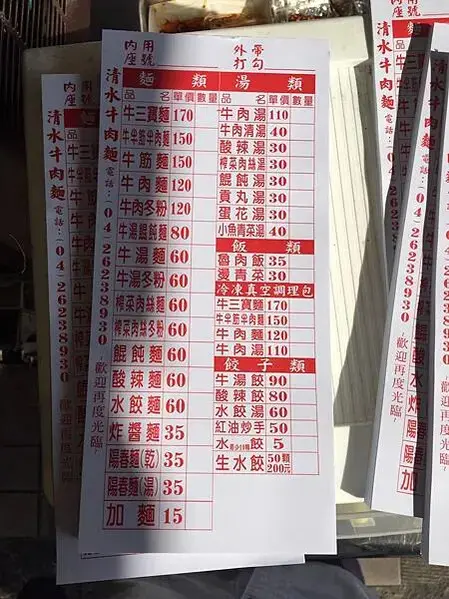 內用
座號
外帶
打勾
清水牛肉麵 電話:(04)26238930 ~歡迎再度光臨~
麵類
品名 單價 數量
牛三寶麵 170
牛半筋半肉麵 150
牛筋麵 150
牛肉麵 120
牛肉冬粉 120
牛湯餛飩麵 80
牛湯麵 60
牛湯冬粉 60
榨菜肉絲麵 60
榨菜肉絲冬粉 60
餛飩麵 60
酸辣麵 60
水餃麵 60
炸醬麵 35
陽春麵(乾) 35
陽春麵(湯) 35
加麵 15
湯類
品名 單價 數量
牛肉湯 110
牛肉清湯 40
酸辣湯 30
榨菜肉絲湯 30
餛飩湯 30
貢丸湯 30
蛋花湯 30
小魚青菜湯 40
飯類
魯肉飯 35
燙青菜 30
冷凍真空調理包
牛三寶麵 170
牛半筋半肉麵 150
牛肉麵 120
牛肉湯 110
餃子類
牛湯餃 90
酸辣餃 80
水餃湯 60
紅油炒手 50
水餃 5
生水餃 50顆200元